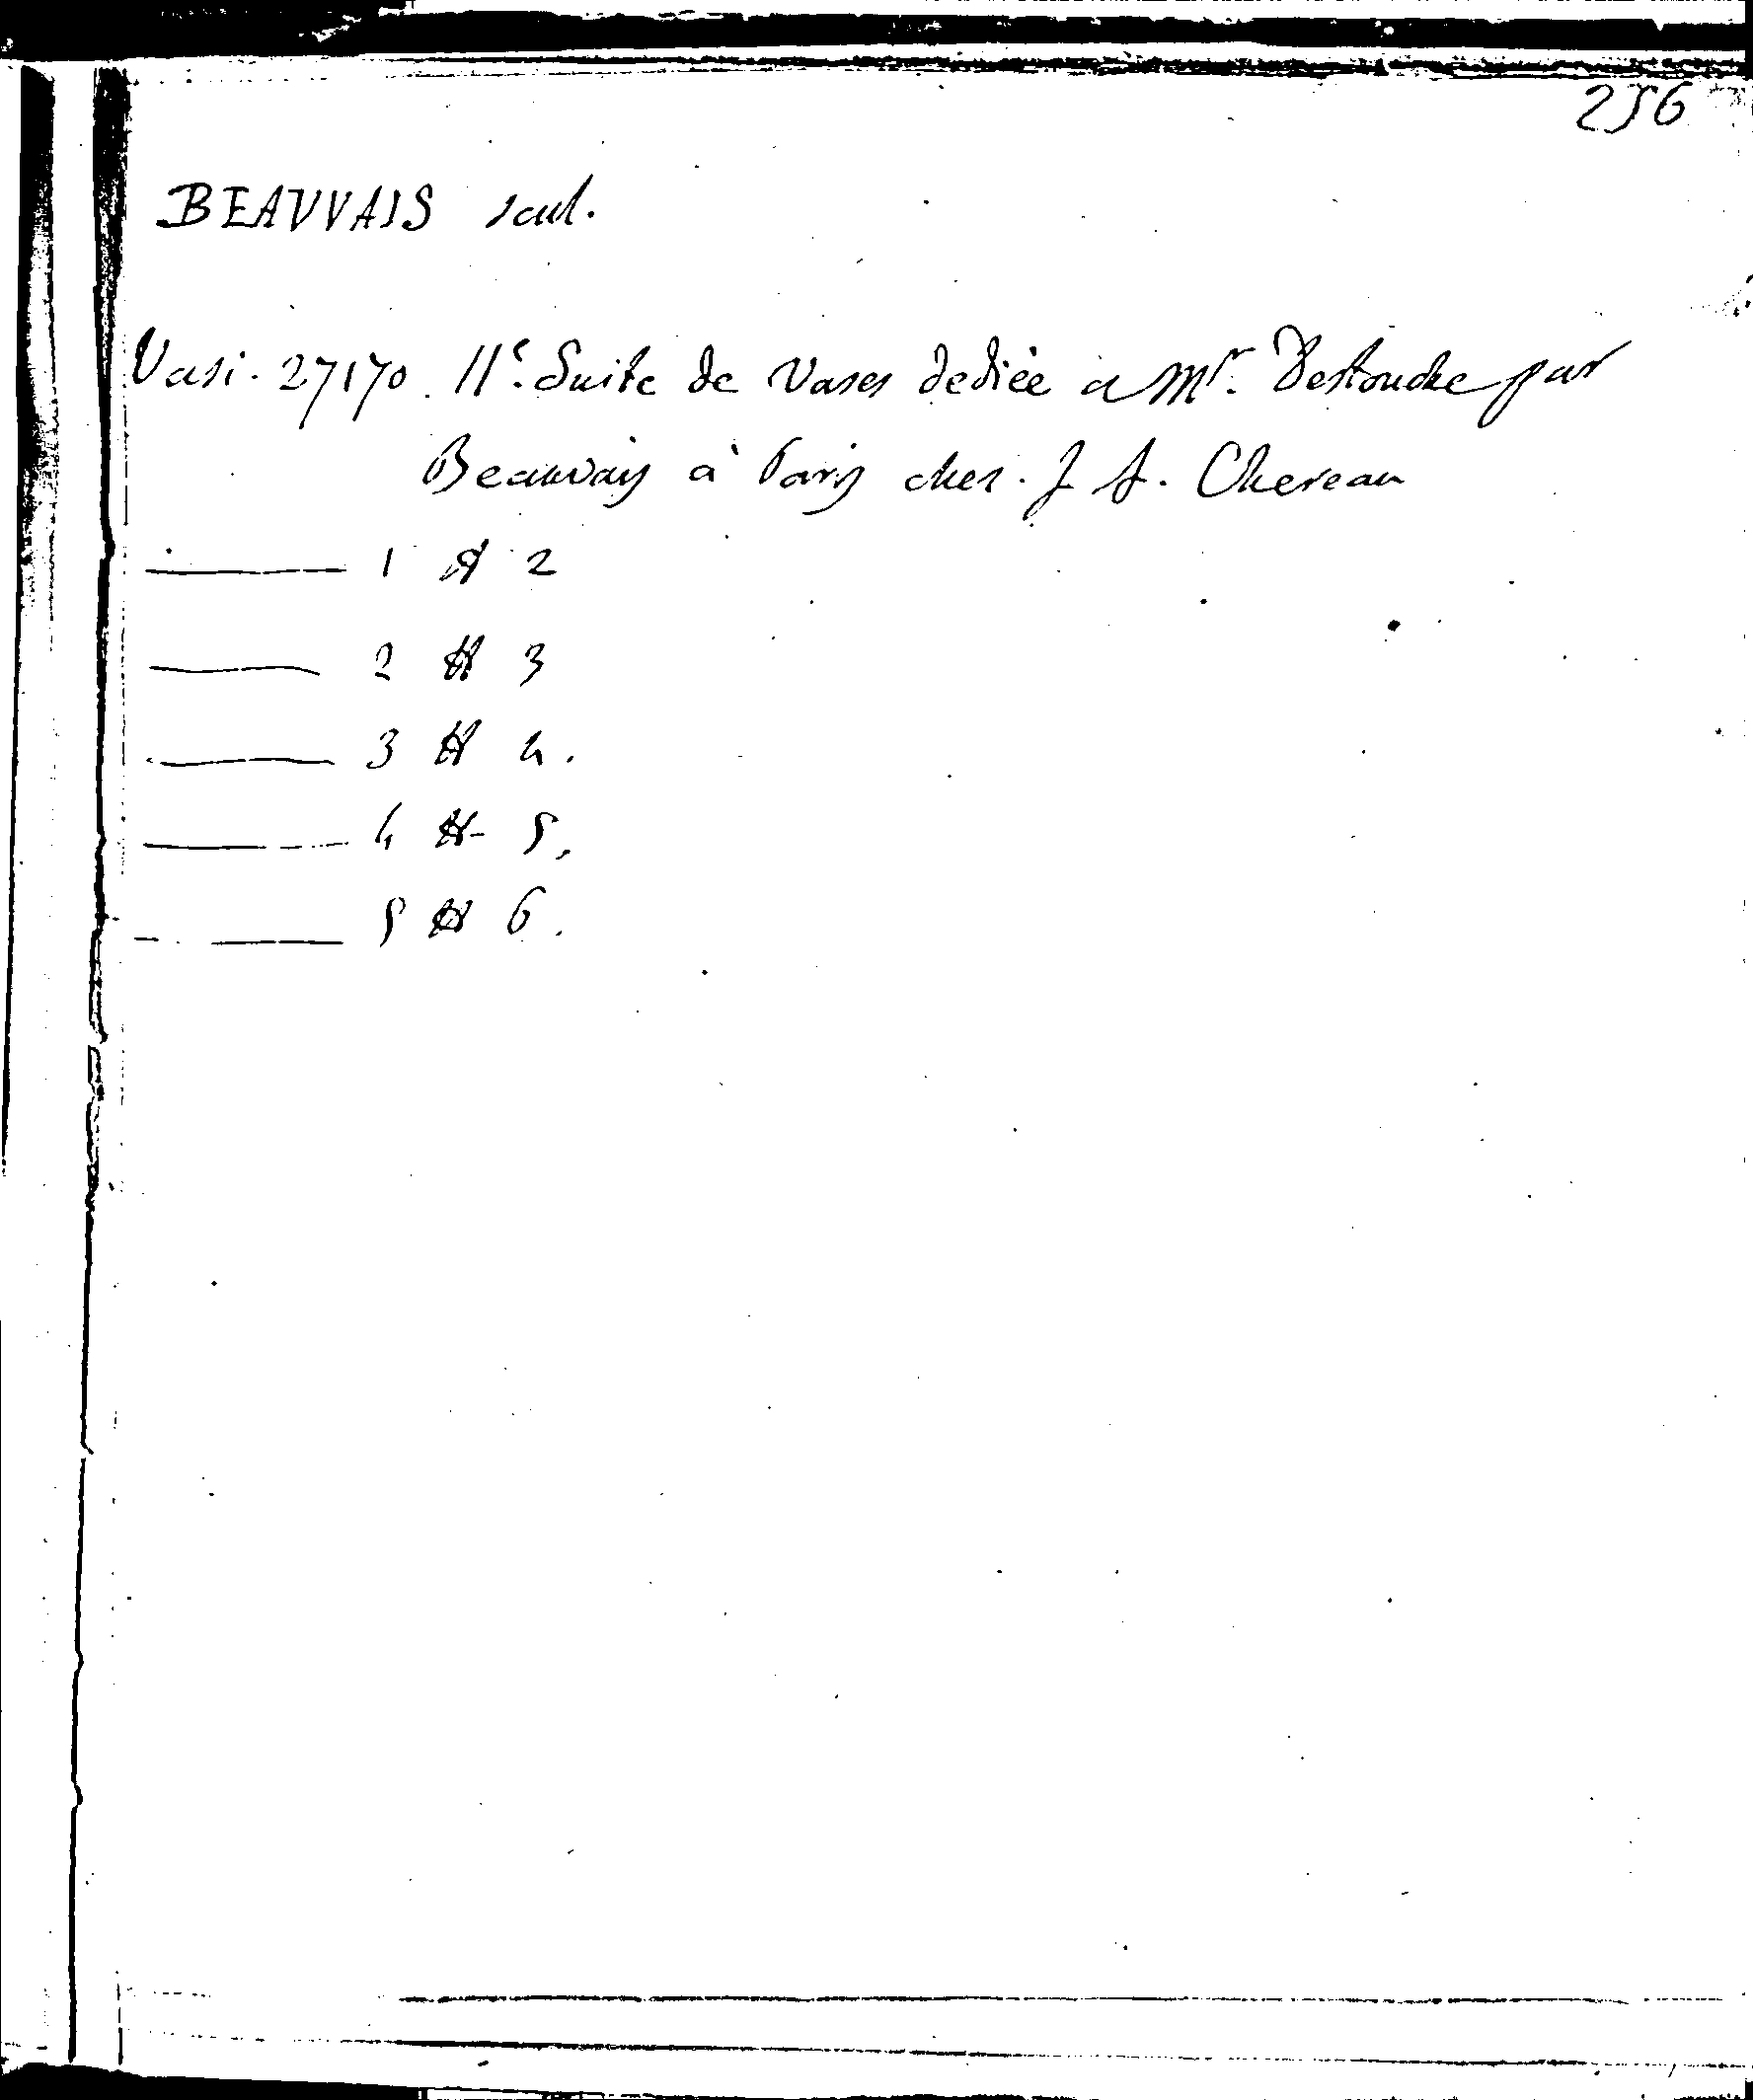 256
BEAUVAIS scul.
Vasi. 27170. IIe. Suite de Vases dediée a Mr. Destouche par
Beauvais à Paris chez. J f. Chereau
1 A 2
2 A 3
3 A 4.
4 A - 5.
5 A 6.